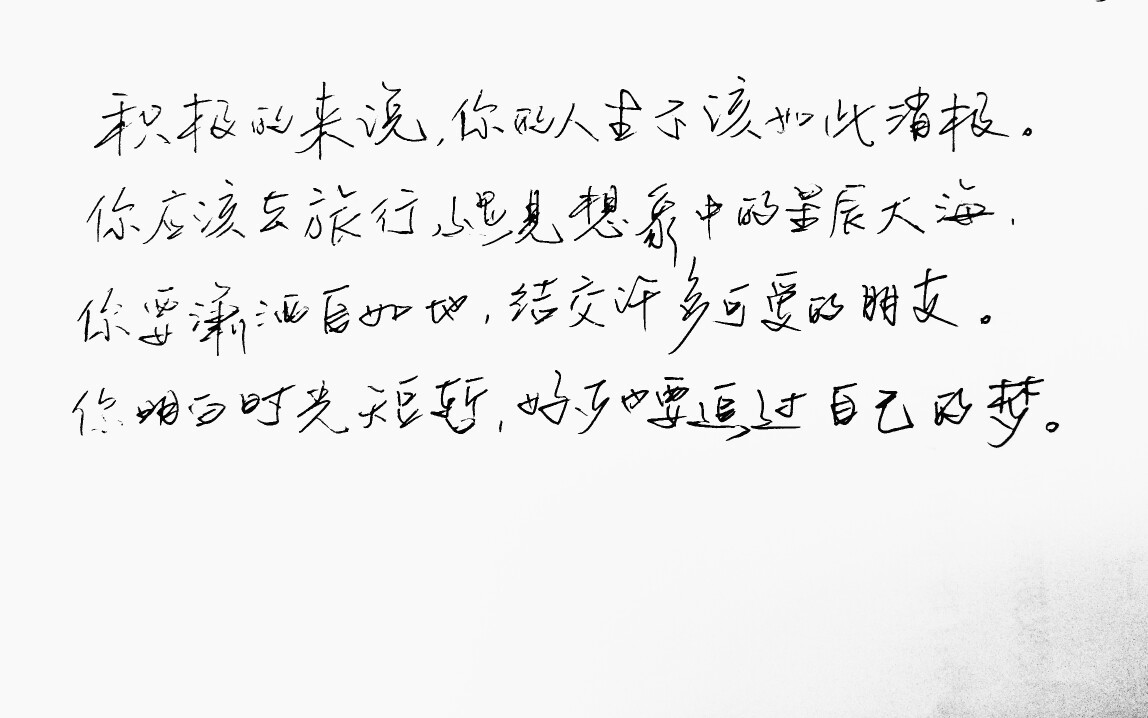 积极的来说,你的人生不该如此消极。
你应该去旅行,遇见想象中的星辰大海,
你要潇洒自如地,结交许多可爱的朋友。
你明白时光短暂,好歹也要追过自己的梦。